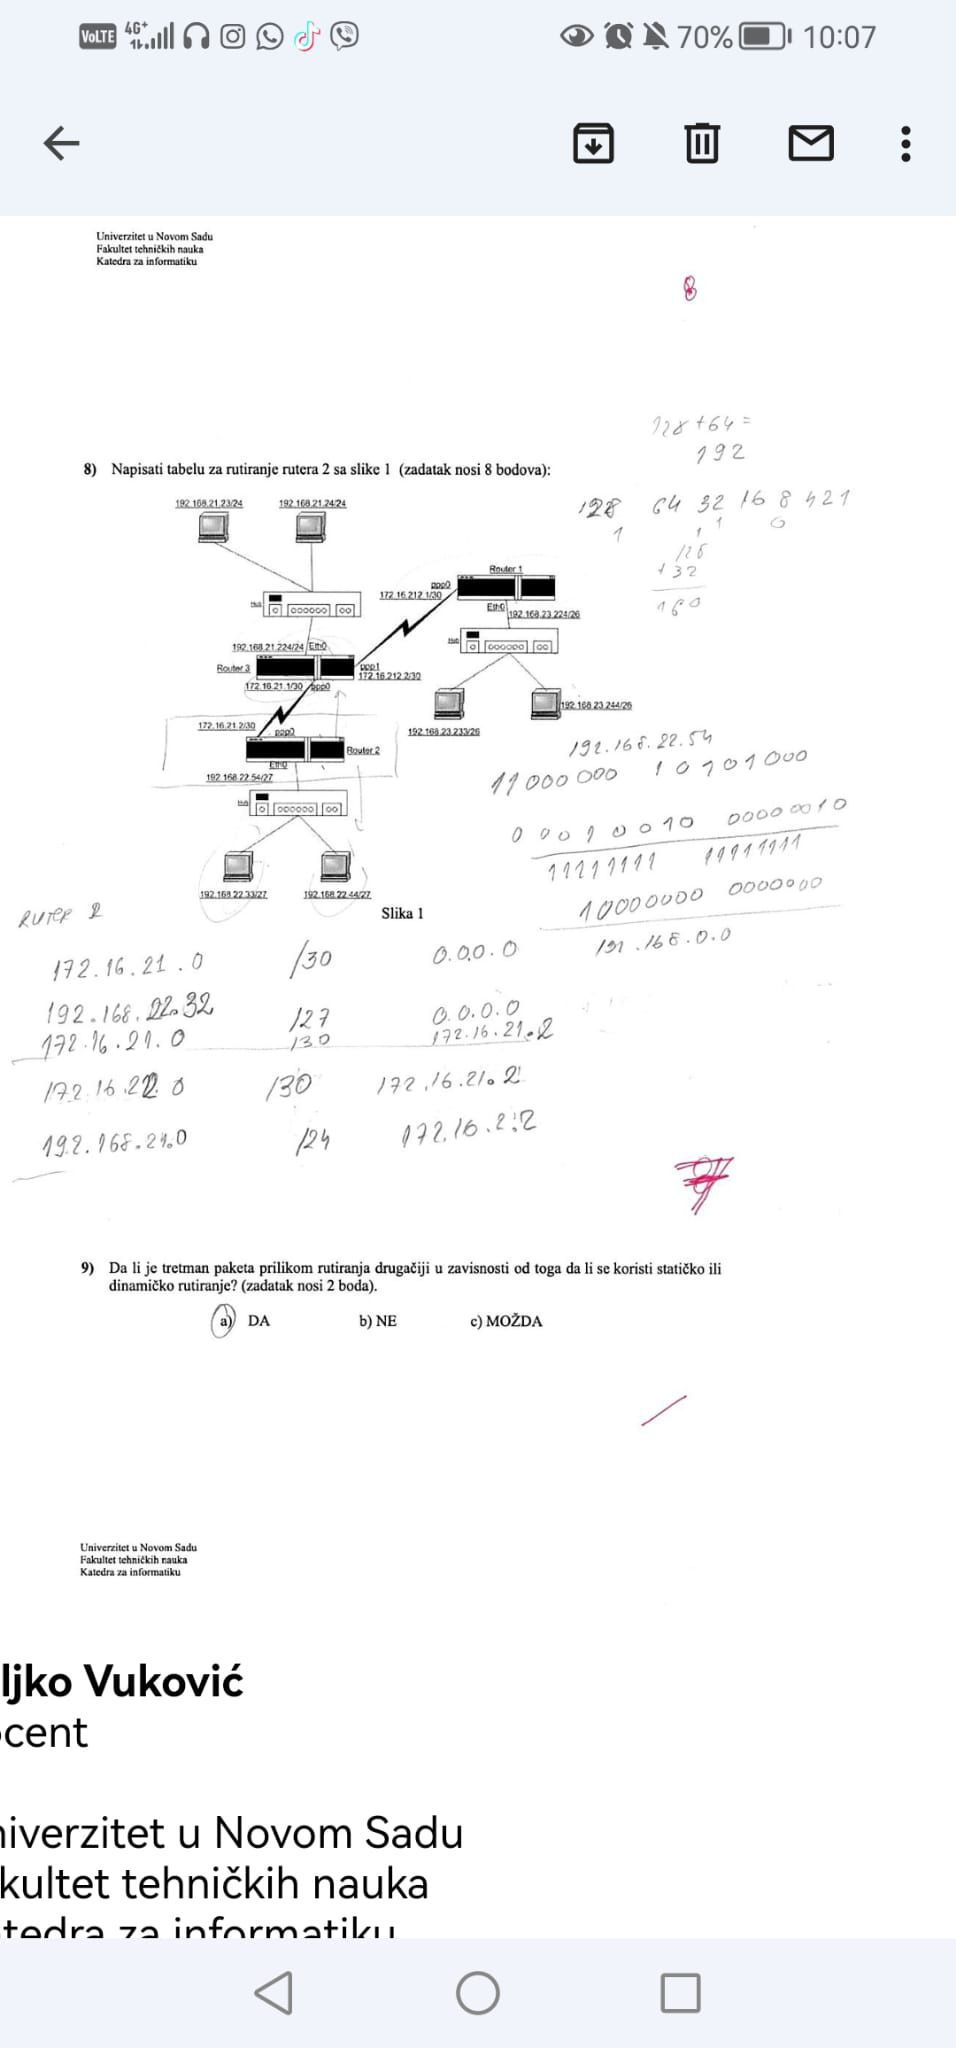 VoLTE 4G+ 70% 10:07
Univerzitet u Novom Sadu
Fakultet tehničkih nauka
Katedra za informatiku
8
128+64=
192
8) Napisati tabelu za rutiranje rutera 2 sa slike 1 (zadatak nosi 8 bodova):
128 64 32 16 8 421
1 1 1 0
128
+32
160
192.168.21.23/24 192.168.21.24/24
Router 1
ppp0
172.16.212.1/30
Eth0
192.168.23.224/26
Hub
Hub
192.168.21.224/24 Eth0
Router 3
ppp1
172.16.212.2/30
172.16.21.1/30 ppp0
192.168.23.244/26
172.16.21.2/30
ppp0
192.168.23.233/26
Router 2
Eth0
192.168.22.54/27
Hub
192.168.22.33/27 192.168.22.44/27
Slika 1
192.168.22.54
11000000 10101000
00010010 00000010
11111111 11111111
10000000 0000000
191.168.0.0
RUTER 2
172.16.21.0 /30 0.0.0.0
192.168.22.32 /27 0.0.0.0
172.16.21.0 /30 172.16.21.2
172.16.22.0 /30 172.16.21.2
192.168.21.0 /24 172.16.2:2
9) Da li je tretman paketa prilikom rutiranja drugačiji u zavisnosti od toga da li se koristi statičko ili
dinamičko rutiranje? (zadatak nosi 2 boda).
a) DA b) NE c) MOŽDA
Univerzitet u Novom Sadu
Fakultet tehničkih nauka
Katedra za informatiku
ljko Vuković
cent
niverzitet u Novom Sadu
kultet tehničkih nauka
tedra za informatiku